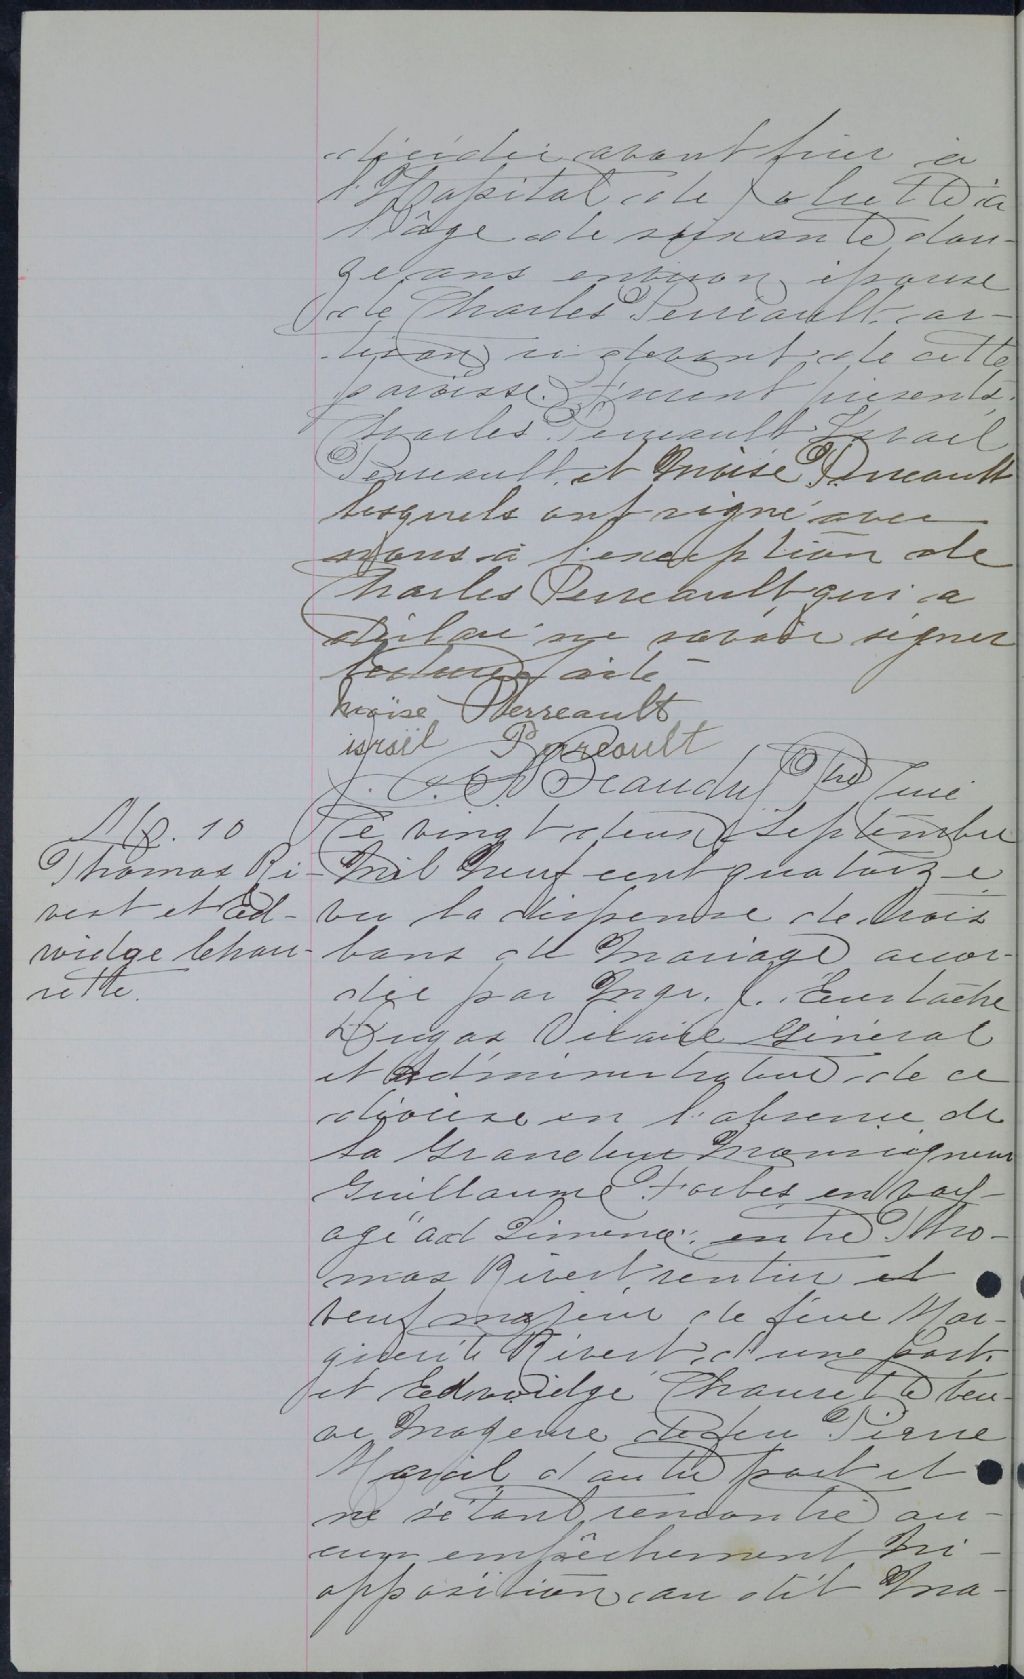 décédée avant hier à
l'Hôpital de Joliette à
l'âge de soixante dou-
ze ans environ, épouse
de Charles Perreault, ar-
tisan ci-devant de cette
paroisse. Furent présents
Charles Perreault, Israël
Perreault, et Moïse Perreault
lesquels ont signé avec
nous à l'exception de
Charles Perreault qui a
déclaré ne savoir signer
Lecture faite
moïse Perreault
israïl Perreault
J. O. Beaudry Ptre Curé
M. 10
Thomas Ri-
vest et Ed-
widge Chau-
rette.
Le vingt deux Septembre
Mil Neuf cent quatorze
vu la dispense de trois
bans de Mariage accor-
dée par Mgr. J. Eustache
Dugas Vicaire Général
et Administrateur de ce
diocèse en l'absence de
Sa Grandeur Monseigneur
Guillaume Forbes en voy-
age "ad Limina", entre Tho-
mas Rivest rentier et
veuf majeur de feue Mar-
guerite Rivest, d'une part,
et Edwidge Chaurette veu-
ve Majeure de feu Pierre
Marcil d'autre part et
ne s'étant rencontré au-
cun empêchement ni
opposition au dit Ma-